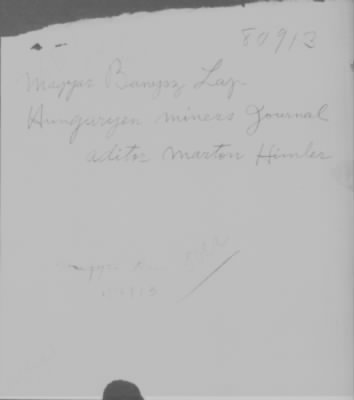 80913
Magyar Banyasz Lap
Hungaryen miners Journal
aditor Marton Himler